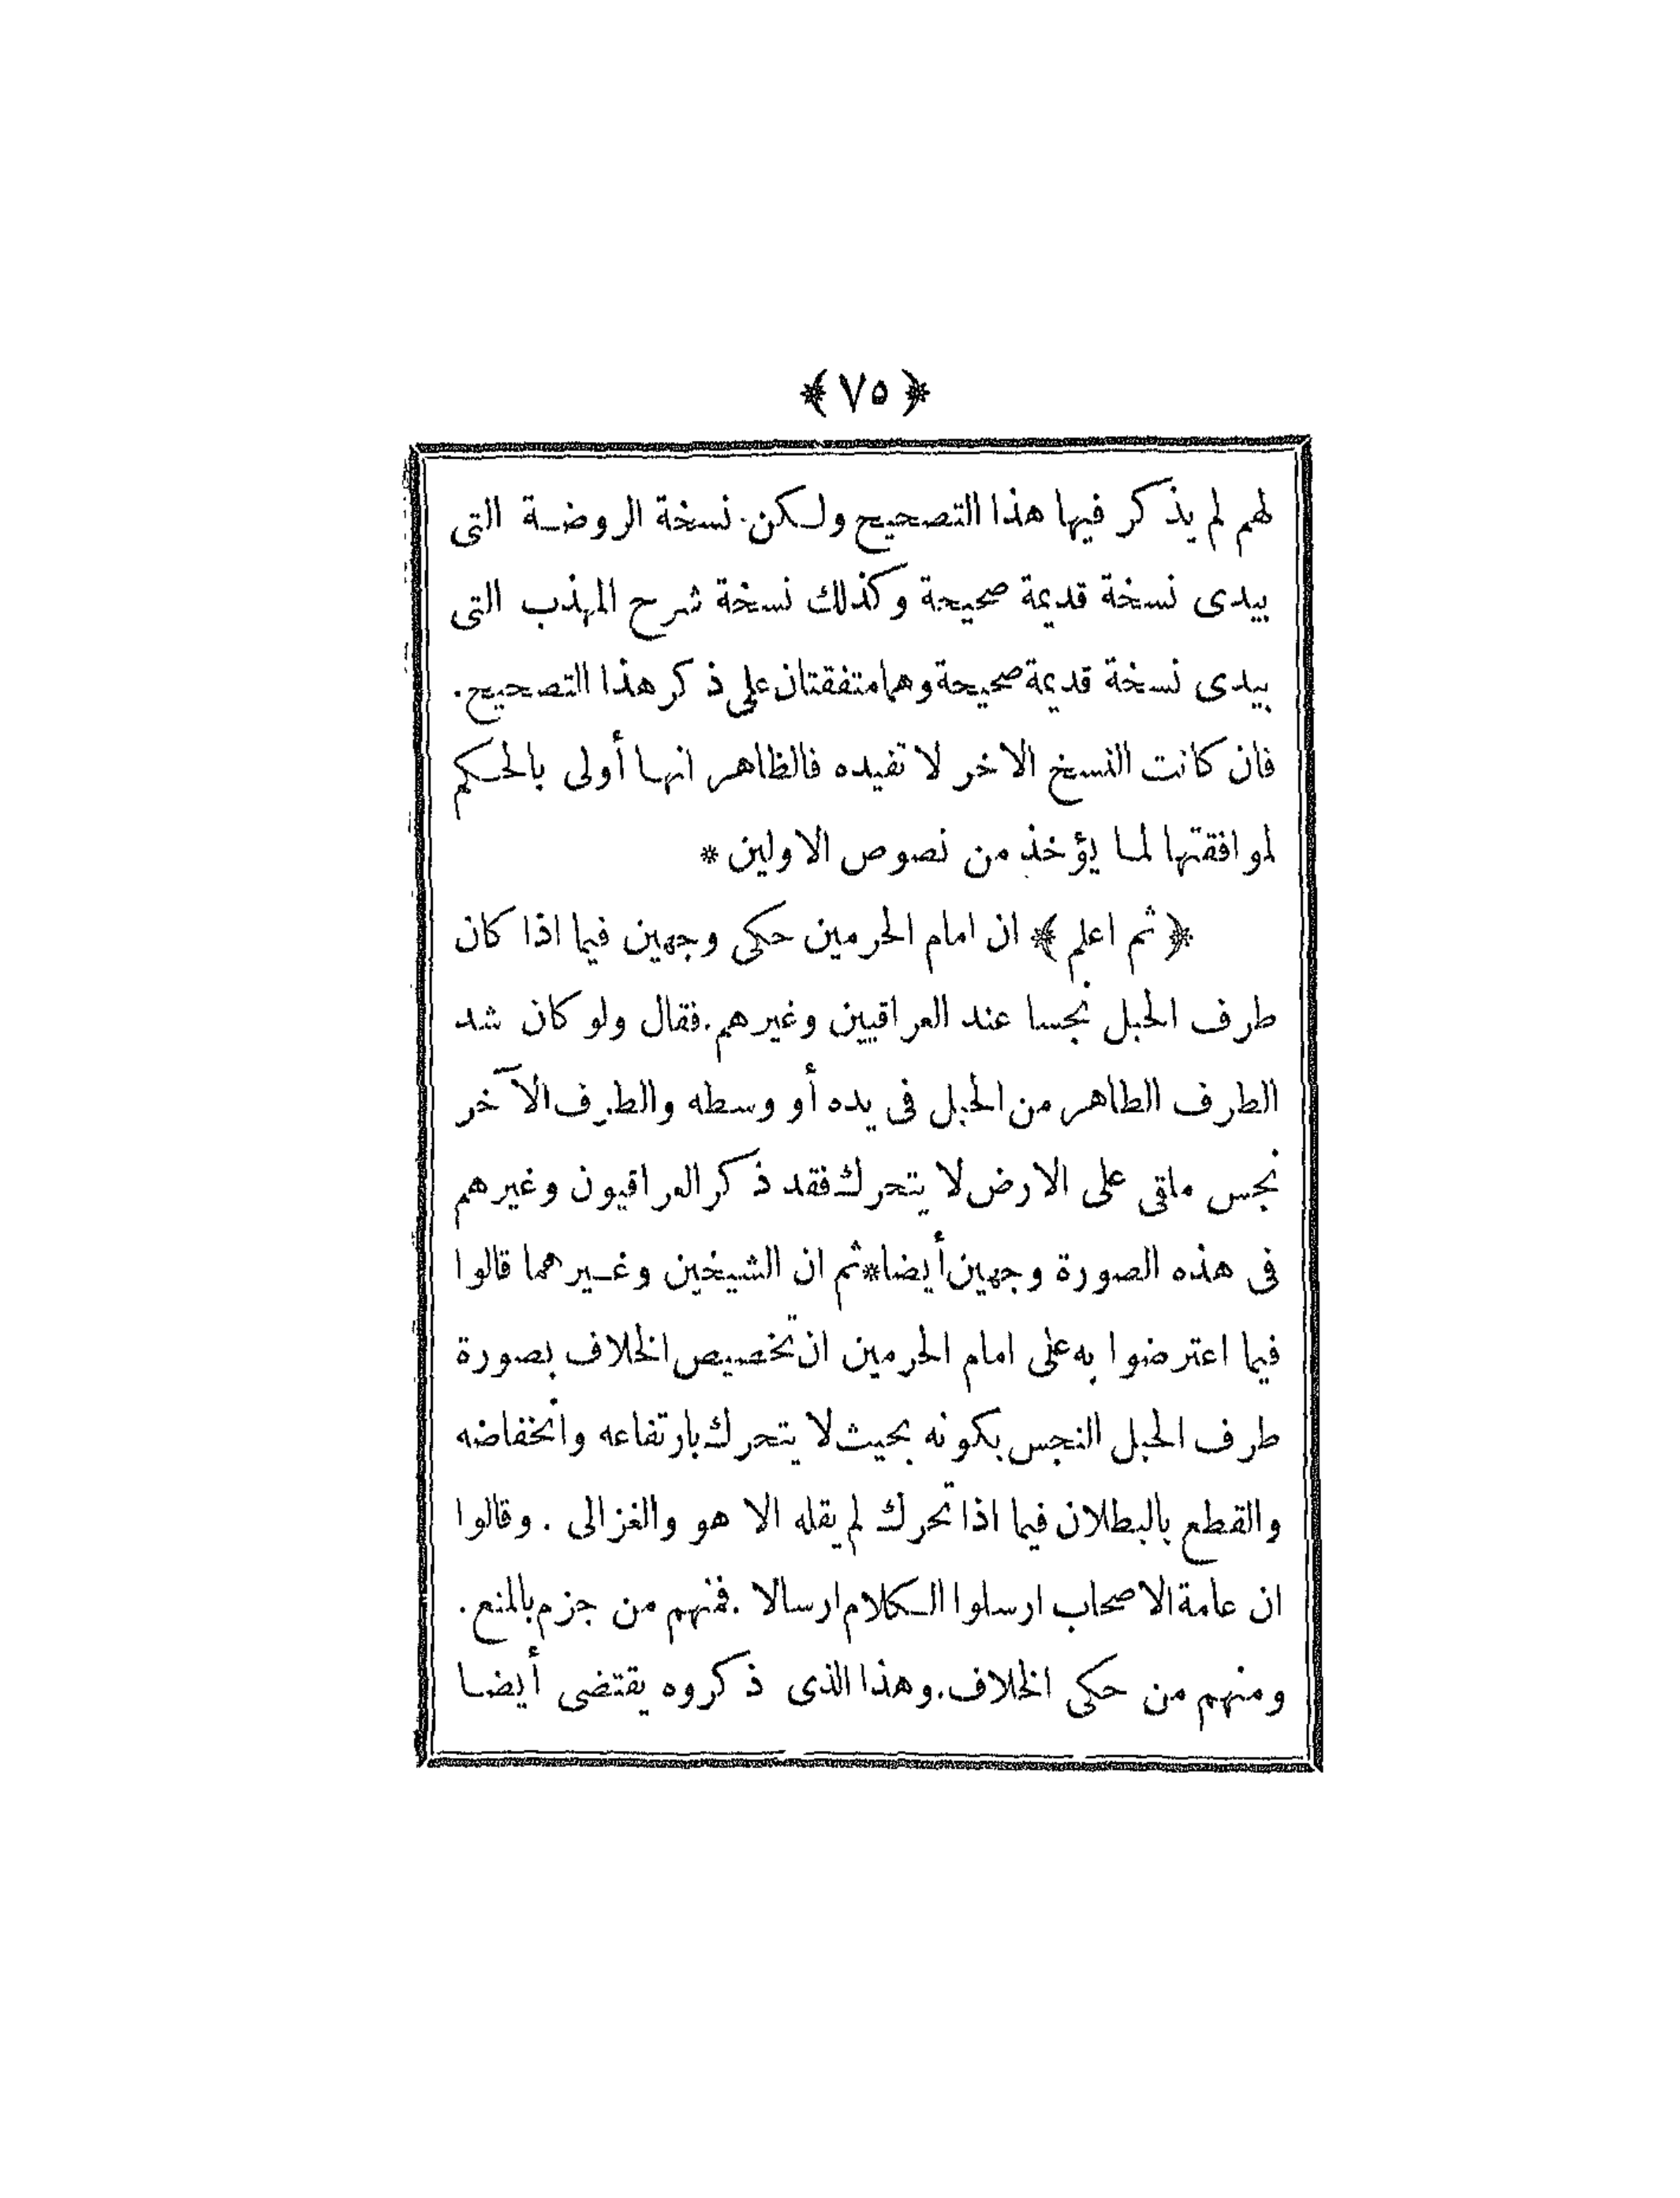 ﴿ ٧٥ ﴾
لهم لم يذكر فيها هذا التصحيح ولكن. نسخة الروضة التى
بيدى نسخة قديمة صحيحة وكذلك نسخة شرح المهذب التى
بيدى نسخة قديمة صحيحة وهما متفقتان على ذكر هذا التصحيح.
فان كانت النسخ الاخر لا تفيده فالظاهر انها أولى بالحكم
لموافقتها لما يؤخذ من نصوص الاولين *
﴿ ثم اعلم ﴾ ان امام الحرمين حكى وجهين فيما اذا كان
طرف الحبل نجسا عند العراقيين وغيرهم. فقال ولو كان شد
الطرف الطاهر من الحبل فى يده أو وسطه والطرف الآخر
نجس ملقى على الارض لا يتحرك فقد ذكر العراقيون وغيرهم
فى هذه الصورة وجهين أيضا * ثم ان الشيخين وغيرهما قالوا
فيما اعترضوا به على امام الحرمين ان تخصيص الخلاف بصورة
طرف الحبل النجس بكونه بحيث لا يتحرك بارتفاعه وانخفاضه
والقطع بالبطلان فيما اذا تحرك لم يقله الا هو والغزالى . وقالوا
ان عامة الاصحاب ارسلوا الكلام ارسالا . فمنهم من جزم بالمنع.
ومنهم من حكى الخلاف. وهذا الذى ذكروه يقتضى أيضا